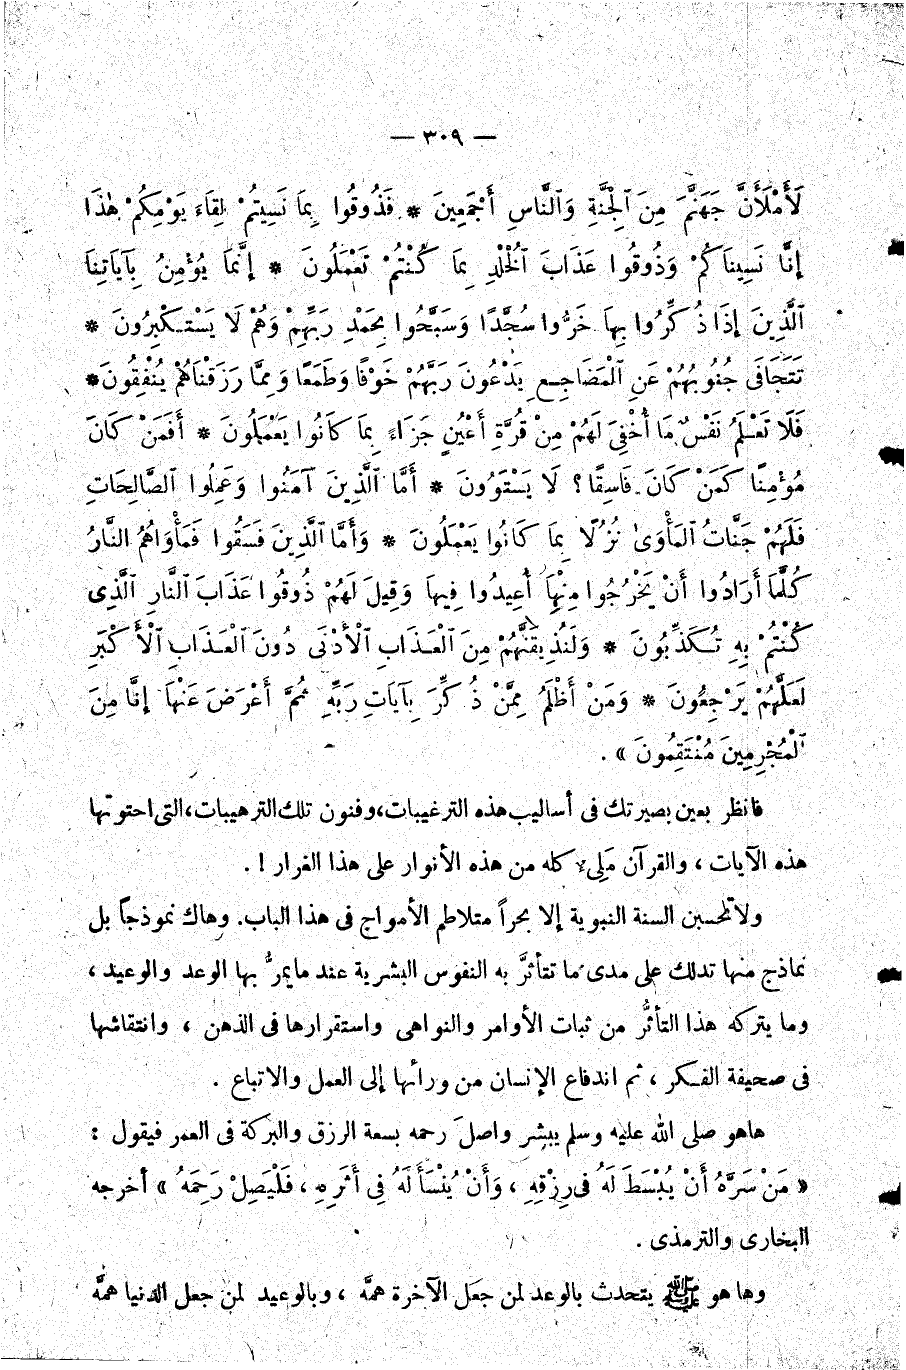 — ٣٠٩ —
لَأَمْلَأَنَّ جَهَنَّمَ مِنَ ٱلْجِنَّةِ وَٱلنَّاسِ أَجْمَعِينَ * فَذُوقُوا بِمَا نَسِيتُمْ لِقَاءَ يَوْمِكُمْ هٰذَا
إِنَّا نَسِينَاكُمْ وَذُوقُوا عَذَابَ ٱلْخُلْدِ بِمَا كُنْتُمْ تَعْمَلُونَ * إِنَّمَا يُؤْمِنُ بِآيَاتِنَا
ٱلَّذِينَ إِذَا ذُكِّرُوا بِهَا خَرُّوا سُجَّدًا وَسَبَّحُوا بِحَمْدِ رَبِّهِمْ وَهُمْ لَا يَسْتَكْبِرُونَ *
تَتَجَافَى جُنُوبُهُمْ عَنِ ٱلْمَضَاجِعِ يَدْعُونَ رَبَّهُمْ خَوْفًا وَطَمَعًا وَمِمَّا رَزَقْنَاهُمْ يُنْفِقُونَ *
فَلَا تَعْلَمُ نَفْسٌ مَا أُخْفِيَ لَهُمْ مِنْ قُرَّةِ أَعْيُنٍ جَزَاءً بِمَا كَانُوا يَعْمَلُونَ * أَفَمَنْ كَانَ
مُؤْمِنًا كَمَنْ كَانَ فَاسِقًا؟ لَا يَسْتَوُونَ * أَمَّا ٱلَّذِينَ آمَنُوا وَعَمِلُوا ٱلصَّالِحَاتِ
فَلَهُمْ جَنَّاتُ ٱلْمَأْوَىٰ نُزُلًا بِمَا كَانُوا يَعْمَلُونَ * وَأَمَّا ٱلَّذِينَ فَسَقُوا فَمَأْوَاهُمُ النَّارُ
كُلَّمَا أَرَادُوا أَنْ يَخْرُجُوا مِنْهَا أُعِيدُوا فِيهَا وَقِيلَ لَهُمْ ذُوقُوا عَذَابَ ٱلنَّارِ ٱلَّذِى
كُنْتُمْ بِهِ تُكَذِّبُونَ * وَلَنُذِيقَنَّهُمْ مِنَ ٱلْعَذَابِ ٱلْأَدْنَى دُونَ ٱلْعَذَابِ ٱلْأَكْبَرِ
لَعَلَّهُمْ يَرْجِعُونَ * وَمَنْ أَظْلَمُ مِمَّنْ ذُكِّرَ بِآيَاتِ رَبِّهِ ثُمَّ أَعْرَضَ عَنْهَا إِنَّا مِنَ
ٱلْمُجْرِمِينَ مُنْتَقِمُونَ » .
فانظر بعين بصيرتك فى أساليب هذه الترغيبات، وفنون تلك الترهيبات، التى احتوتها
هذه الآيات ، والقرآن مَلِىء كله من هذه الأنوار على هذا الغرار ! .
ولا تحسبن السنة النبوية إلا بحراً متلاطم الأمواج فى هذا الباب. وهاك نموذجاً بل
نماذج منها تدلك على مدى ما تتأثَّر به النفوس البشرية عند ما يمرُّ بها الوعد والوعيد ،
وما يتركه هذا التأثُّر من ثبات الأوامر والنواهى واستقرارها فى الذهن ، وانتقاشها
فى صحيفة الفكر ، ثم اندفاع الإنسان من ورائها إلى العمل والاتباع .
هاهو صلى الله عليه وسلم يبشر واصلَ رحمه بسعة الرزق والبركة فى العمر فيقول :
« مَنْ سَرَّهُ أَنْ يُبْسَطَ لَهُ فى رِزْقِهِ ، وَأَنْ يُنْسَأَ لَهُ فِى أَثَرِهِ ، فَلْيَصِلْ رَحِمَهُ » أخرجه
البخارى والترمذى .
وها هو ﷺ يتحدث بالوعد لمن جعَل الآخرة همَّه ، وبالوعيد لمن جعل الدنيا همَّه